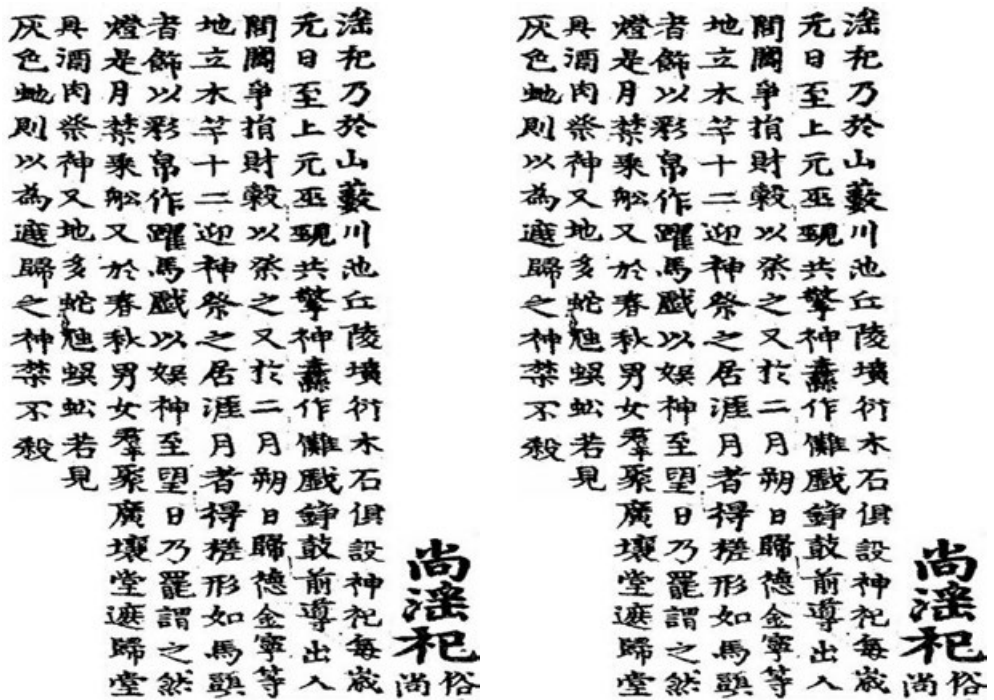 尚淫祀
俗尚
淫祀乃於山藪川池丘陵墳衍木石俱設神祀每歲
元日至上元巫覡共擎神纛作儺戲錚鼓前導出入
閭閻爭捐財穀以祭之又於二月朔日歸德金寧等
地立木竿十二迎神祭之居涯月者得槎形如馬頭
者飾以彩帛作躍馬戲以娛神至望日乃罷謂之然
燈是月禁乘船又於春秋男女羣聚廣壤堂遮歸堂
具酒肉祭神又地多蛇虺蜈蚣若見
灰色虵則以為遮歸之神禁不殺
尚淫祀
俗尚
淫祀乃於山藪川池丘陵墳衍木石俱設神祀每歲
元日至上元巫覡共擎神纛作儺戲錚鼓前導出入
閭閻爭捐財穀以祭之又於二月朔日歸德金寧等
地立木竿十二迎神祭之居涯月者得槎形如馬頭
者飾以彩帛作躍馬戲以娛神至望日乃罷謂之然
燈是月禁乘船又於春秋男女羣聚廣壤堂遮歸堂
具酒肉祭神又地多蛇虺蜈蚣若見
灰色虵則以為遮歸之神禁不殺